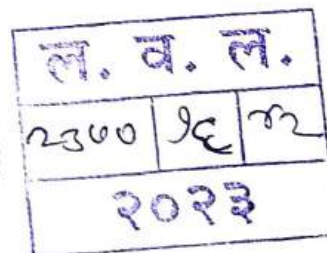 ल. व. ल.
२३७० १६ ४२
२०२३